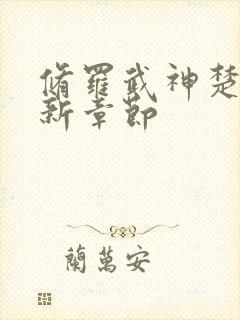 脩羅武神楚
新章節
蘭萬安